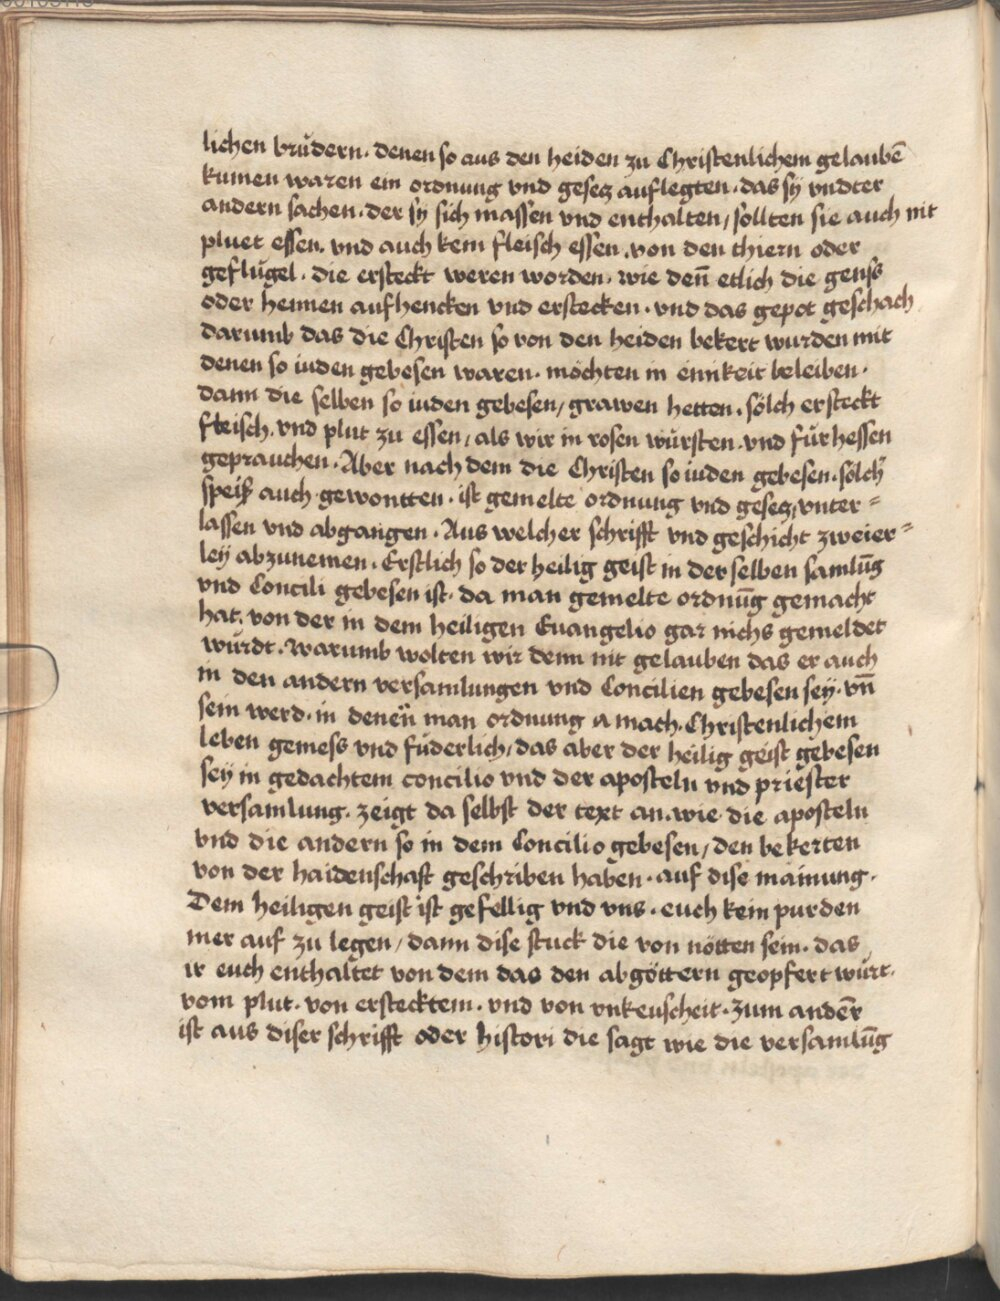 lichen brüdern · denen so aus den heiden zu Christenlichem gelaubē
kumen waren ein ordnung vnd gesez auflegten · das sÿ vndter
andern sachen · der sÿ sich massen vnd enthalten / sollten sie auch nit
pluet essen · vnd auch kein fleisch essen · von den thiern oder
geflügel · die ersteckt weren worden · wie den̄ etlich die genss
oder hennen aufhencken vnd erstecken · vnd das gepot geschach
darumb das die Christen so von den heiden bekert wurden mit
denen so iuden gebesen waren · möchten in einikeit beleiben ·
dann die selben so iuden gebesen / grawen hetten · sölch ersteckt
fleisch · vnd plut zu essen / als wir in rosen würsten · vnd für hessen
geprauchen · Aber nach dem die Christen so iuden gebesen · sölch
speiß auch gewontten · ist gemelte ordnung vnd gesez / vnter=
lassen vnd abgangen · Aus welcher schrifft vnd geschicht zweier=
leÿ abzunemen · Erstlich so der heilig geist in der selben samlūg
vnd Concili gebesen ist · da man gemelte ordnūg gemacht
hat · von der in dem heiligen Euangelio gar nichs gemeldet
würdt · warumb wolten wir denn nit gelauben das er auch
in den andern versamlungen vnd Concilien gebesen seÿ · vn̄
sein werd · in denen man ordnung a mach · Christenlichem
leben gemess vnd füderlich / das aber der heilig geist gebesen
seÿ in gedachtem concilio vnd der aposteln vnd priester
versamlung · zeigt da selbst der text an · wie die aposteln
vnd die andern so in dem Concilio gebesen / den bekerten
von der haidenschaft geschriben haben · auf dise mainung ·
Dem heiligen geist ist gefellig vnd vns · euch kein purden
mer auf zu legen / dann dise stuck die von nötten sein · das
ir euch enthaltet von dem das den abgöttern geopfert würt ·
vom plut · von erstecktem · vnd von vnkeuscheit · zum andēr
ist aus diser schrifft oder histori die sagt wie die versamlūg